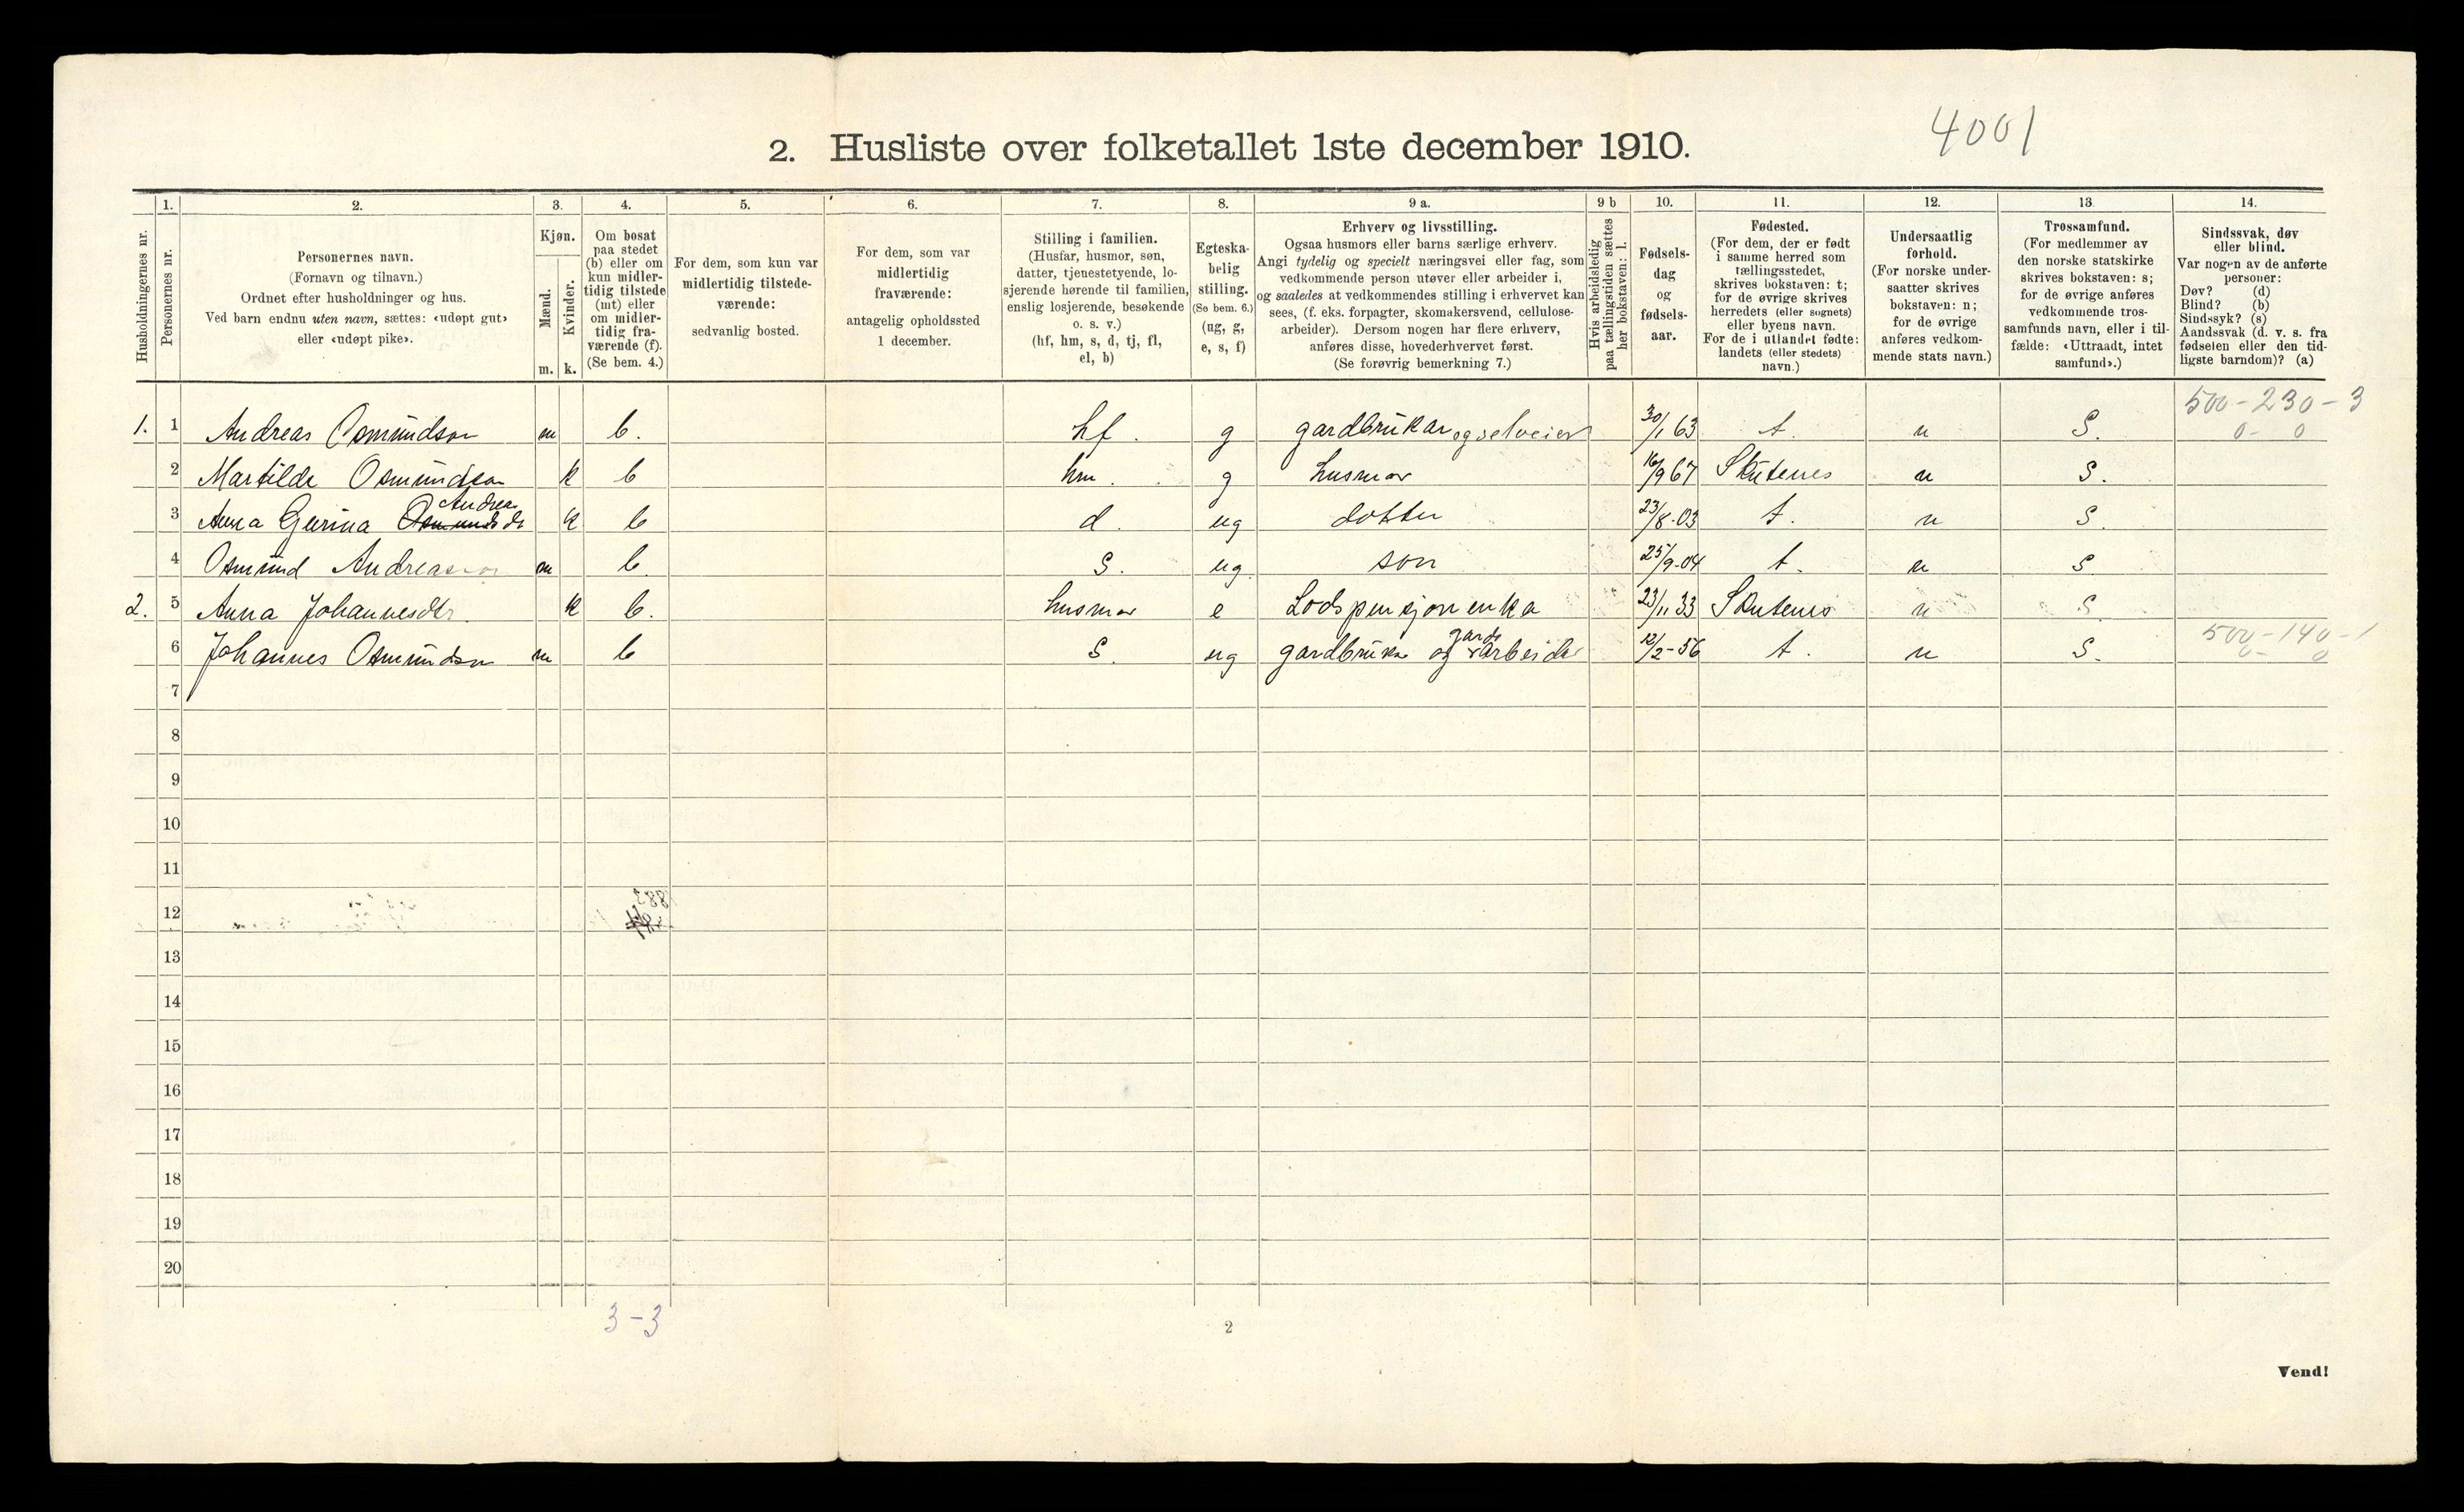 4001
2. Husliste over folketallet 1ste december 1910.
Husholdningernes nr.
1. Personernes nr.
2. Personernes navn.
(Fornavn og tilnavn.)
Ordnet efter husholdninger og hus.
Ved barn endnu uten navn, sættes: «udøpt gut»
eller «udøpt pike».
3. Kjøn.
Mænd. m.
Kvinder. k.
4. Om bosat
paa stedet
(b) eller om
kun midler-
tidig tilstede
(mt) eller
om midler-
tidig fra-
værende (f).
(Se bem. 4.)
5. For dem, som kun var
midlertidig tilstede-
værende:
sedvanlig bosted.
6. For dem, som var
midlertidig
fraværende:
antagelig opholdssted
1 december.
7. Stilling i familien.
(Husfar, husmor, søn,
datter, tjenestetyende, lo-
sjerende hørende til familien,
enslig losjerende, besøkende
o. s. v.)
(hf, hm, s, d, tj, fl,
el, b)
8. Egteska-
belig
stilling.
(Se bem. 6.)
(ug, g,
e, s, f)
9 a. Erhverv og livsstilling.
Ogsaa husmors eller barns særlige erhverv.
Angi tydelig og specielt næringsvei eller fag, som
vedkommende person utøver eller arbeider i,
og saaledes at vedkommendes stilling i erhvervet kan
sees, (f. eks. forpagter, skomakersvend, cellulose-
arbeider). Dersom nogen har flere erhverv,
anføres disse, hovederhvervet først.
(Se forøvrig bemerkning 7.)
9 b Hvis arbeidsledig
paa tællingstiden sættes
her bokstaven: l.
10. Fødsels-
dag
og
fødsels-
aar.
11. Fødested.
(For dem, der er født
i samme herred som
tællingsstedet,
skrives bokstaven: t;
for de øvrige skrives
herredets (eller sognets)
eller byens navn.
For de i utlandet fødte:
landets (eller stedets)
navn.)
12. Undersaatlig
forhold.
(For norske under-
saatter skrives
bokstaven: n;
for de øvrige
anføres vedkom-
mende stats navn.)
13. Trossamfund.
(For medlemmer av
den norske statskirke
skrives bokstaven: s;
for de øvrige anføres
vedkommende tros-
samfunds navn, eller i til-
fælde: «Uttraadt, intet
samfund».)
14. Sindssvak, døv
eller blind.
Var nogen av de anførte
personer:
Døv? (d)
Blind? (b)
Sindssyk? (s)
Aandssvak (d. v. s. fra
fødselen eller den tid-
ligste barndom)? (a)
500-230-3
1. 1 Andreas Osmundson m b. hf. g gardbrukar og selveier 30/1 63 t. n S. 0- 0
2 Martilde Osmundson k b hm. g husmor 16/9 67 Skutenes n S.
Andreas
3 Anna Gurina Osmundsdt k b d. ug dotter 23/8-03 t. n S.
4 Osmund Andreasson m b. S. ug. son 25/9-04 t. n S
2. 5 Anna Johannesdtr. k b. husmor e Lodspensjonenka 23/11 33 Skutenes n S.
gards 500-140-1
6 Johannes Osmundson m b S. ug gardbruka og arbeider 12/2-56 t. n S. 0- 0
7
8
9
10
11
1883
12
13
14
15
16
17
18
19
20
3-3
2
Vend!